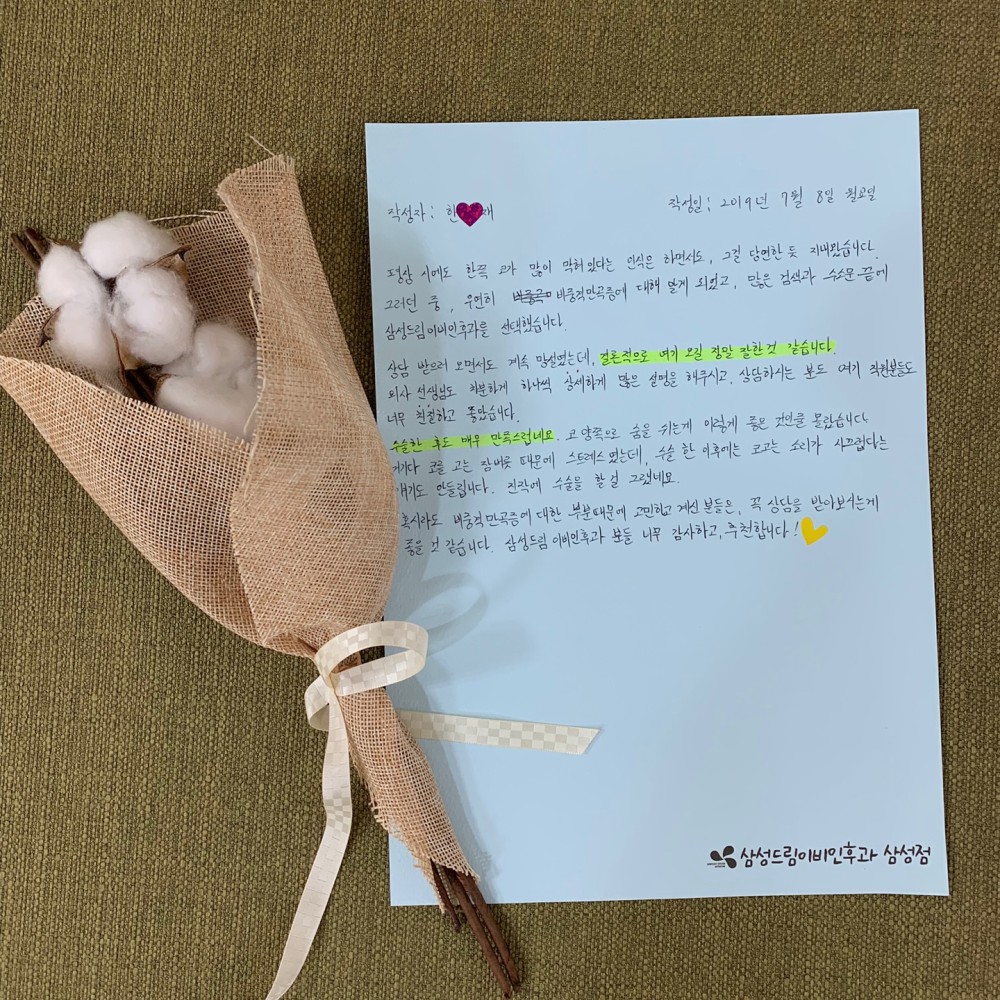 작성자: 한 재
작성일: 2019년 7월 8일 월요일
평상 시에도 한쪽 코가 많이 막혀있다는 인식은 하면서도, 그걸 당연한 듯 지내왔습니다.
그러던 중, 우연히 비중격만곡증에 대해 알게 되었고, 많은 검색과 수소문 끝에
삼성드림이비인후과를 선택했습니다.
상담 받으러 오면서도 계속 망설였는데, 결론적으로 여기 오길 정말 잘한것 같습니다.
의사 선생님도 차분하게 하나씩 상세하게 많은 설명을 해주시고, 상담하시는 분도 여기 직원분들도
너무 친절하고 좋았습니다.
수술한 후도 매우 만족스럽네요. 코 양쪽으로 숨을 쉬는게 이렇게 좋은 것인줄 몰랐습니다.
거기다 코를 고는 잠버릇 때문에 스트레스였는데, 수술 한 이후에는 코고는 소리가 시끄럽다는
얘기도 안들립니다. 진작에 수술을 할 걸 그랬네요.
혹시라도 비중격만곡증에 대한 부분때문에 고민하고 계신분들은, 꼭 상담을 받아보시는게
좋을 것 같습니다. 삼성드림이비인후과 분들 너무 감사하고, 추천합니다!
삼성드림이비인후과 삼성점